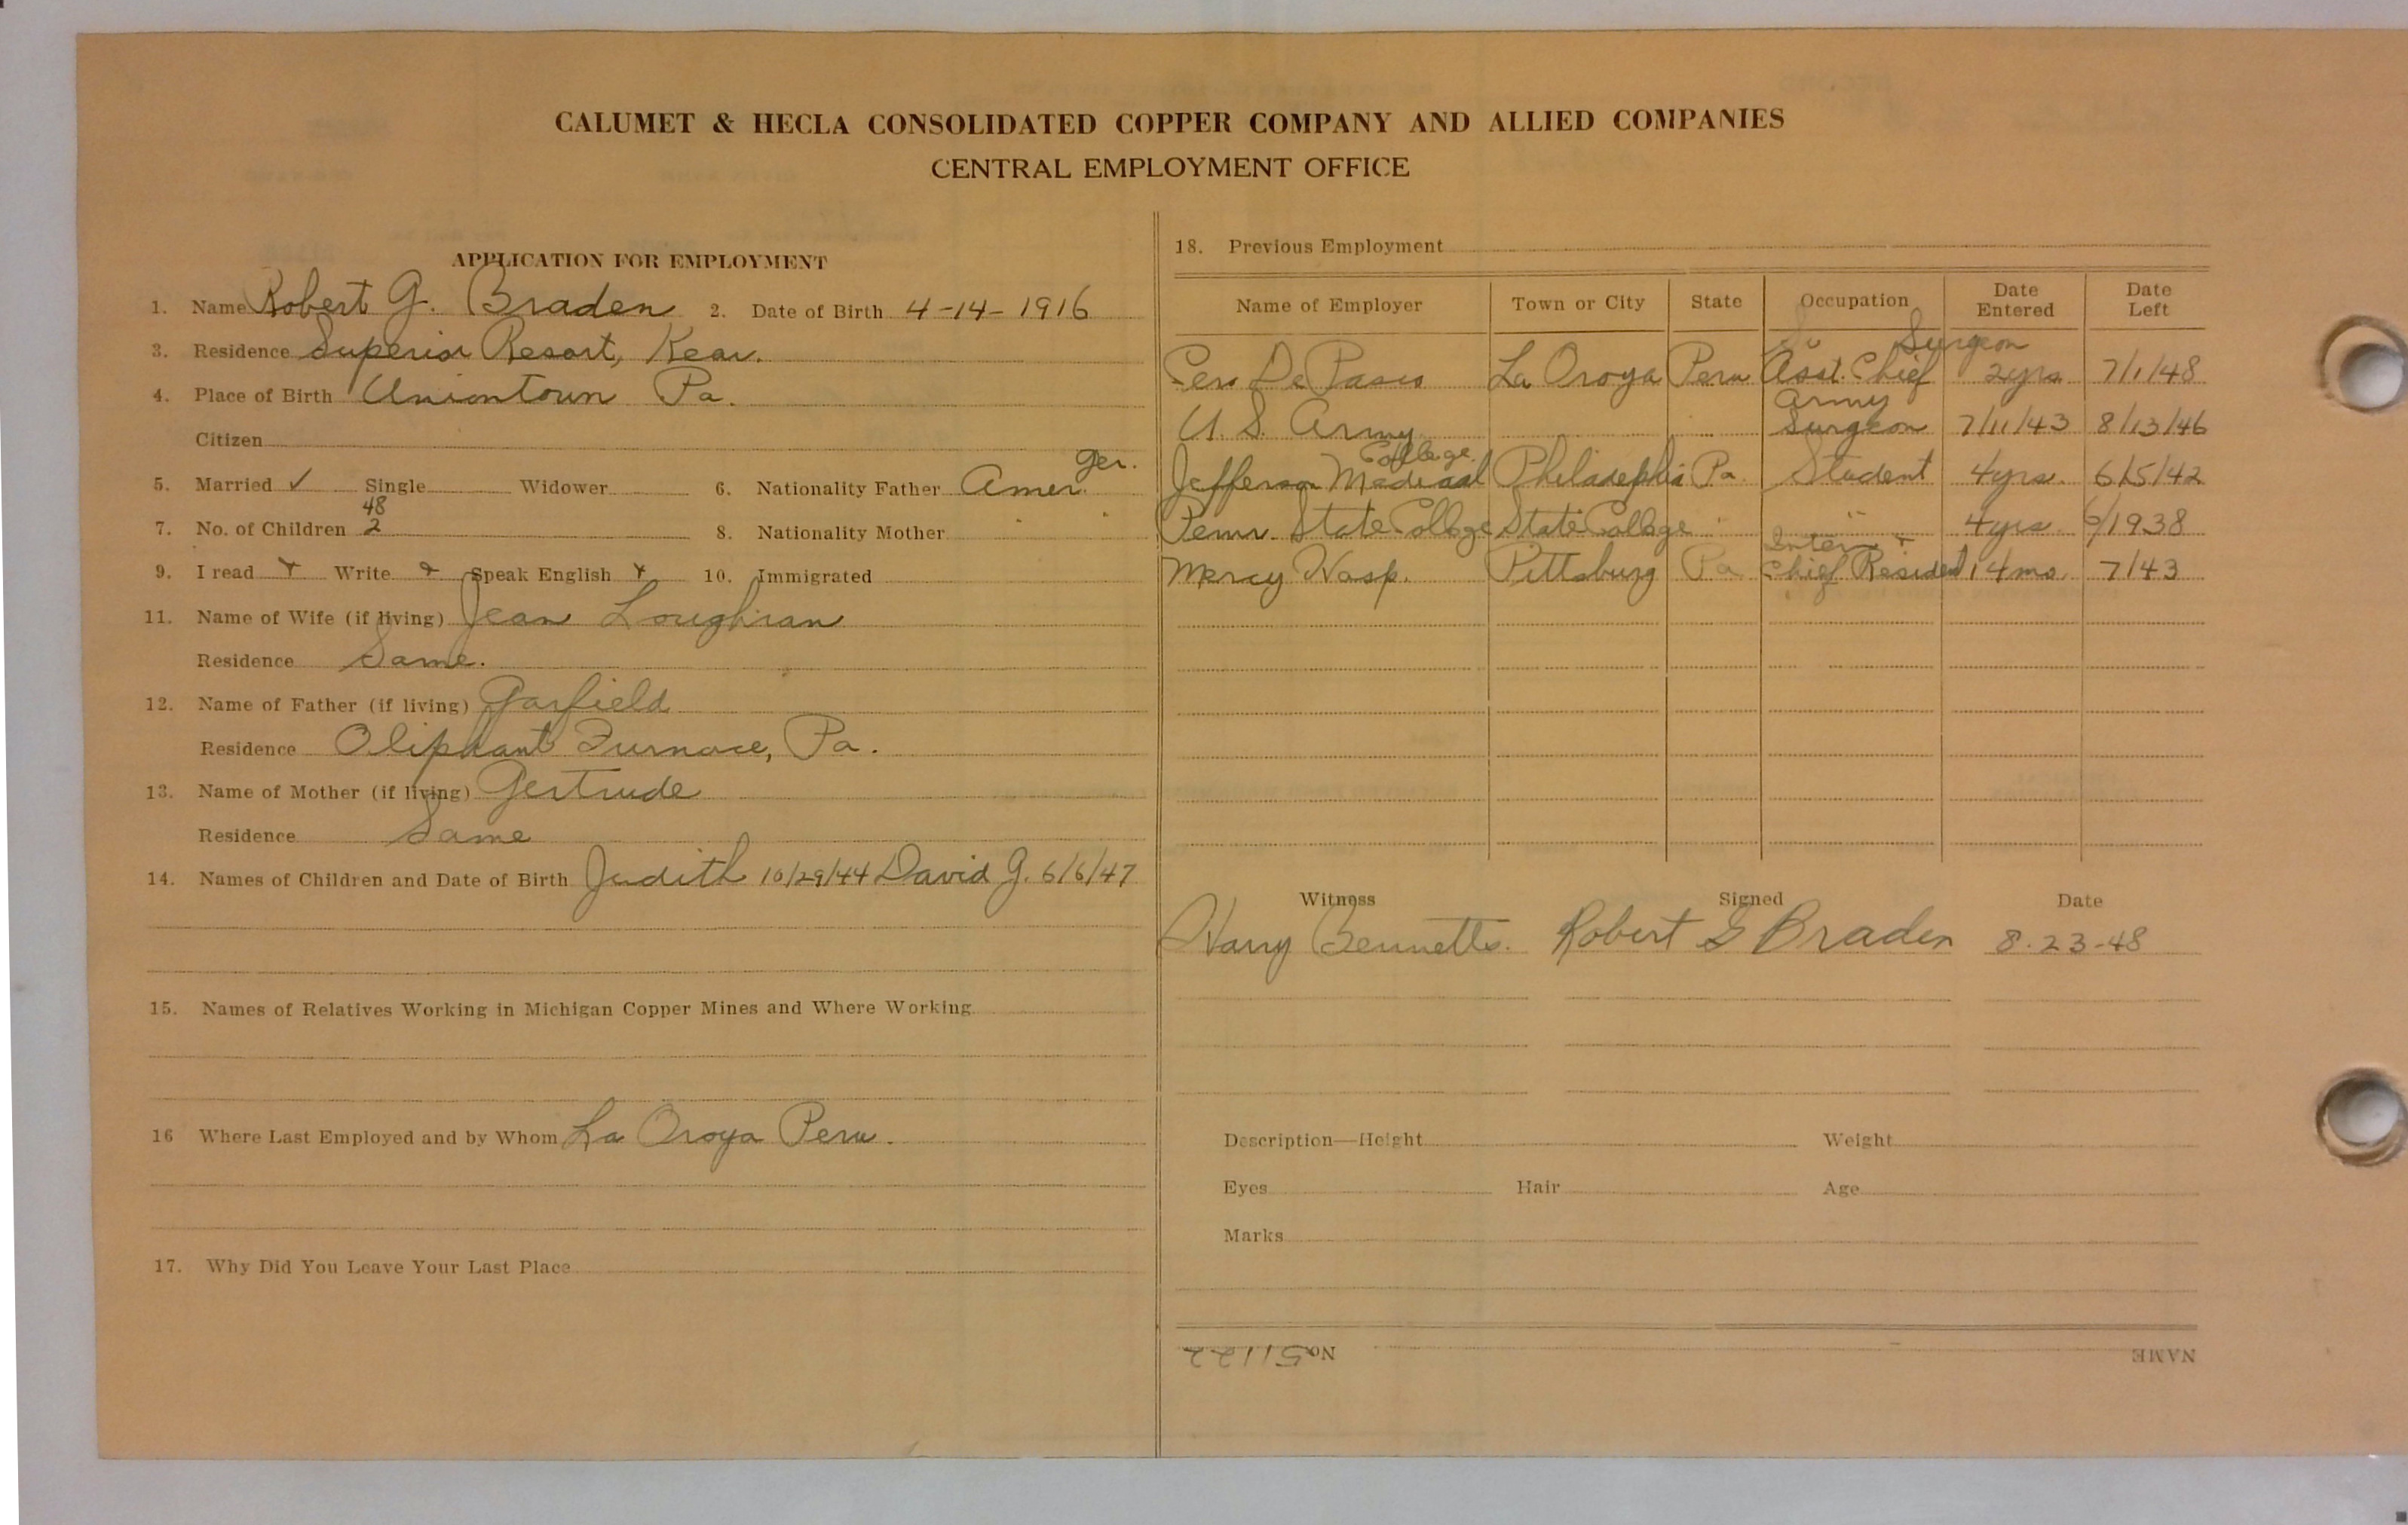 CALUMET & HECLA CONSOLIDATED COPPER COMPANY AND ALLIED COMPANIES
CENTRAL EMPLOYMENT OFFICE
APPLICATION FOR EMPLOYMENT
1. Name Robert G. Braden 2. Date of Birth 4-14-1916
3. Residence Superior Resort, Kear.
4. Place of Birth Uniontown Pa.
Citizen
Ger.
5. Married ✓ Single Widower 6. Nationality Father Amer.
48
7. No. of Children 2 8. Nationality Mother " "
9. I read + Write + Speak English + 10. Immigrated
11. Name of Wife (if living) Jean Loughran
Residence Same.
12. Name of Father (if living) Garfield
Residence Oliphant Furnace, Pa.
13. Name of Mother (if living) Gertrude
Residence Same
14. Names of Children and Date of Birth Judith 10/29/44 David G. 6/6/47
15. Names of Relatives Working in Michigan Copper Mines and Where Working
16 Where Last Employed and by Whom La Oroya Peru.
17. Why Did You Leave Your Last Place
18. Previous Employment
Name of Employer Town or City State Occupation Date Entered Date Left
Surgeon
De Pasco La Oroya Peru Asst. Chief 2yrs 7/1/48
Army
U. S. Army Surgeon 7/11/43 8/13/46
College
Jefferson Medical Philadephia Pa. Student 4yrs. 6/5/42
Penn. State College State College " " 4yrs. 6/1938
Intern +
Mercy Hosp. Pittsburg Pa Chief Resident 14mo. 7/43
Witness Signed Date
Harry Bennetts. Robert G Braden 8-23-48
Description—Height Weight
Eyes Hair Age
Marks
No. 51122 NAME